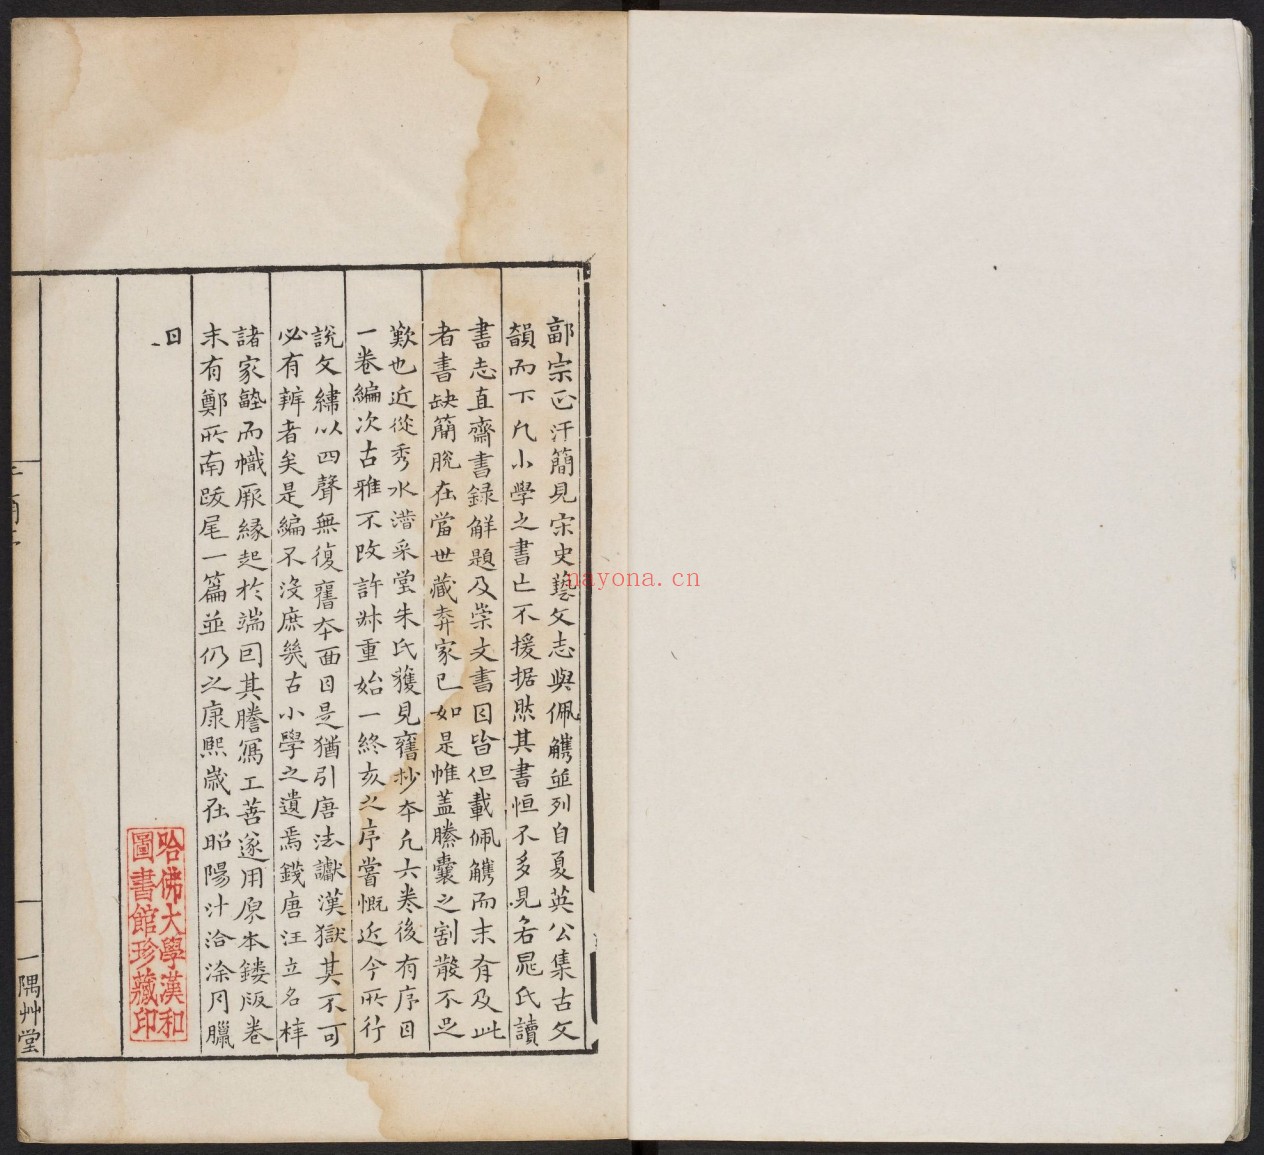 郭宗正汗簡見宋史藝文志與佩觿並列自夏英公集古文
韻而下凡小學之書亡不援据然其書恒不多見若晁氏讀
書志直齋書録解題及崇文書目皆但載佩觿而未有及此
者書缺簡脫在當世藏弆家已如是惟蓋縢囊之割散不足
歎也近從秀水潛采堂朱氏獲見舊抄本凡六卷後有序目
一卷編次古雅不改許叔重始一終亥之序嘗慨近今所行
說文繡以四聲無復舊本面目是猶引唐法讞漢獄其不可
必有辨者矣是編不沒庶幾古小學之遺焉錢唐汪立名梓
諸家塾而幟厥緣起於端因其謄寫工善遂用原本鏤版卷
末有鄭所南跋尾一篇並仍之康熙歲在昭陽汁洽涂月臘
日
一隅艸堂
哈佛大學漢和
圖書館珍藏印
nayona.cn